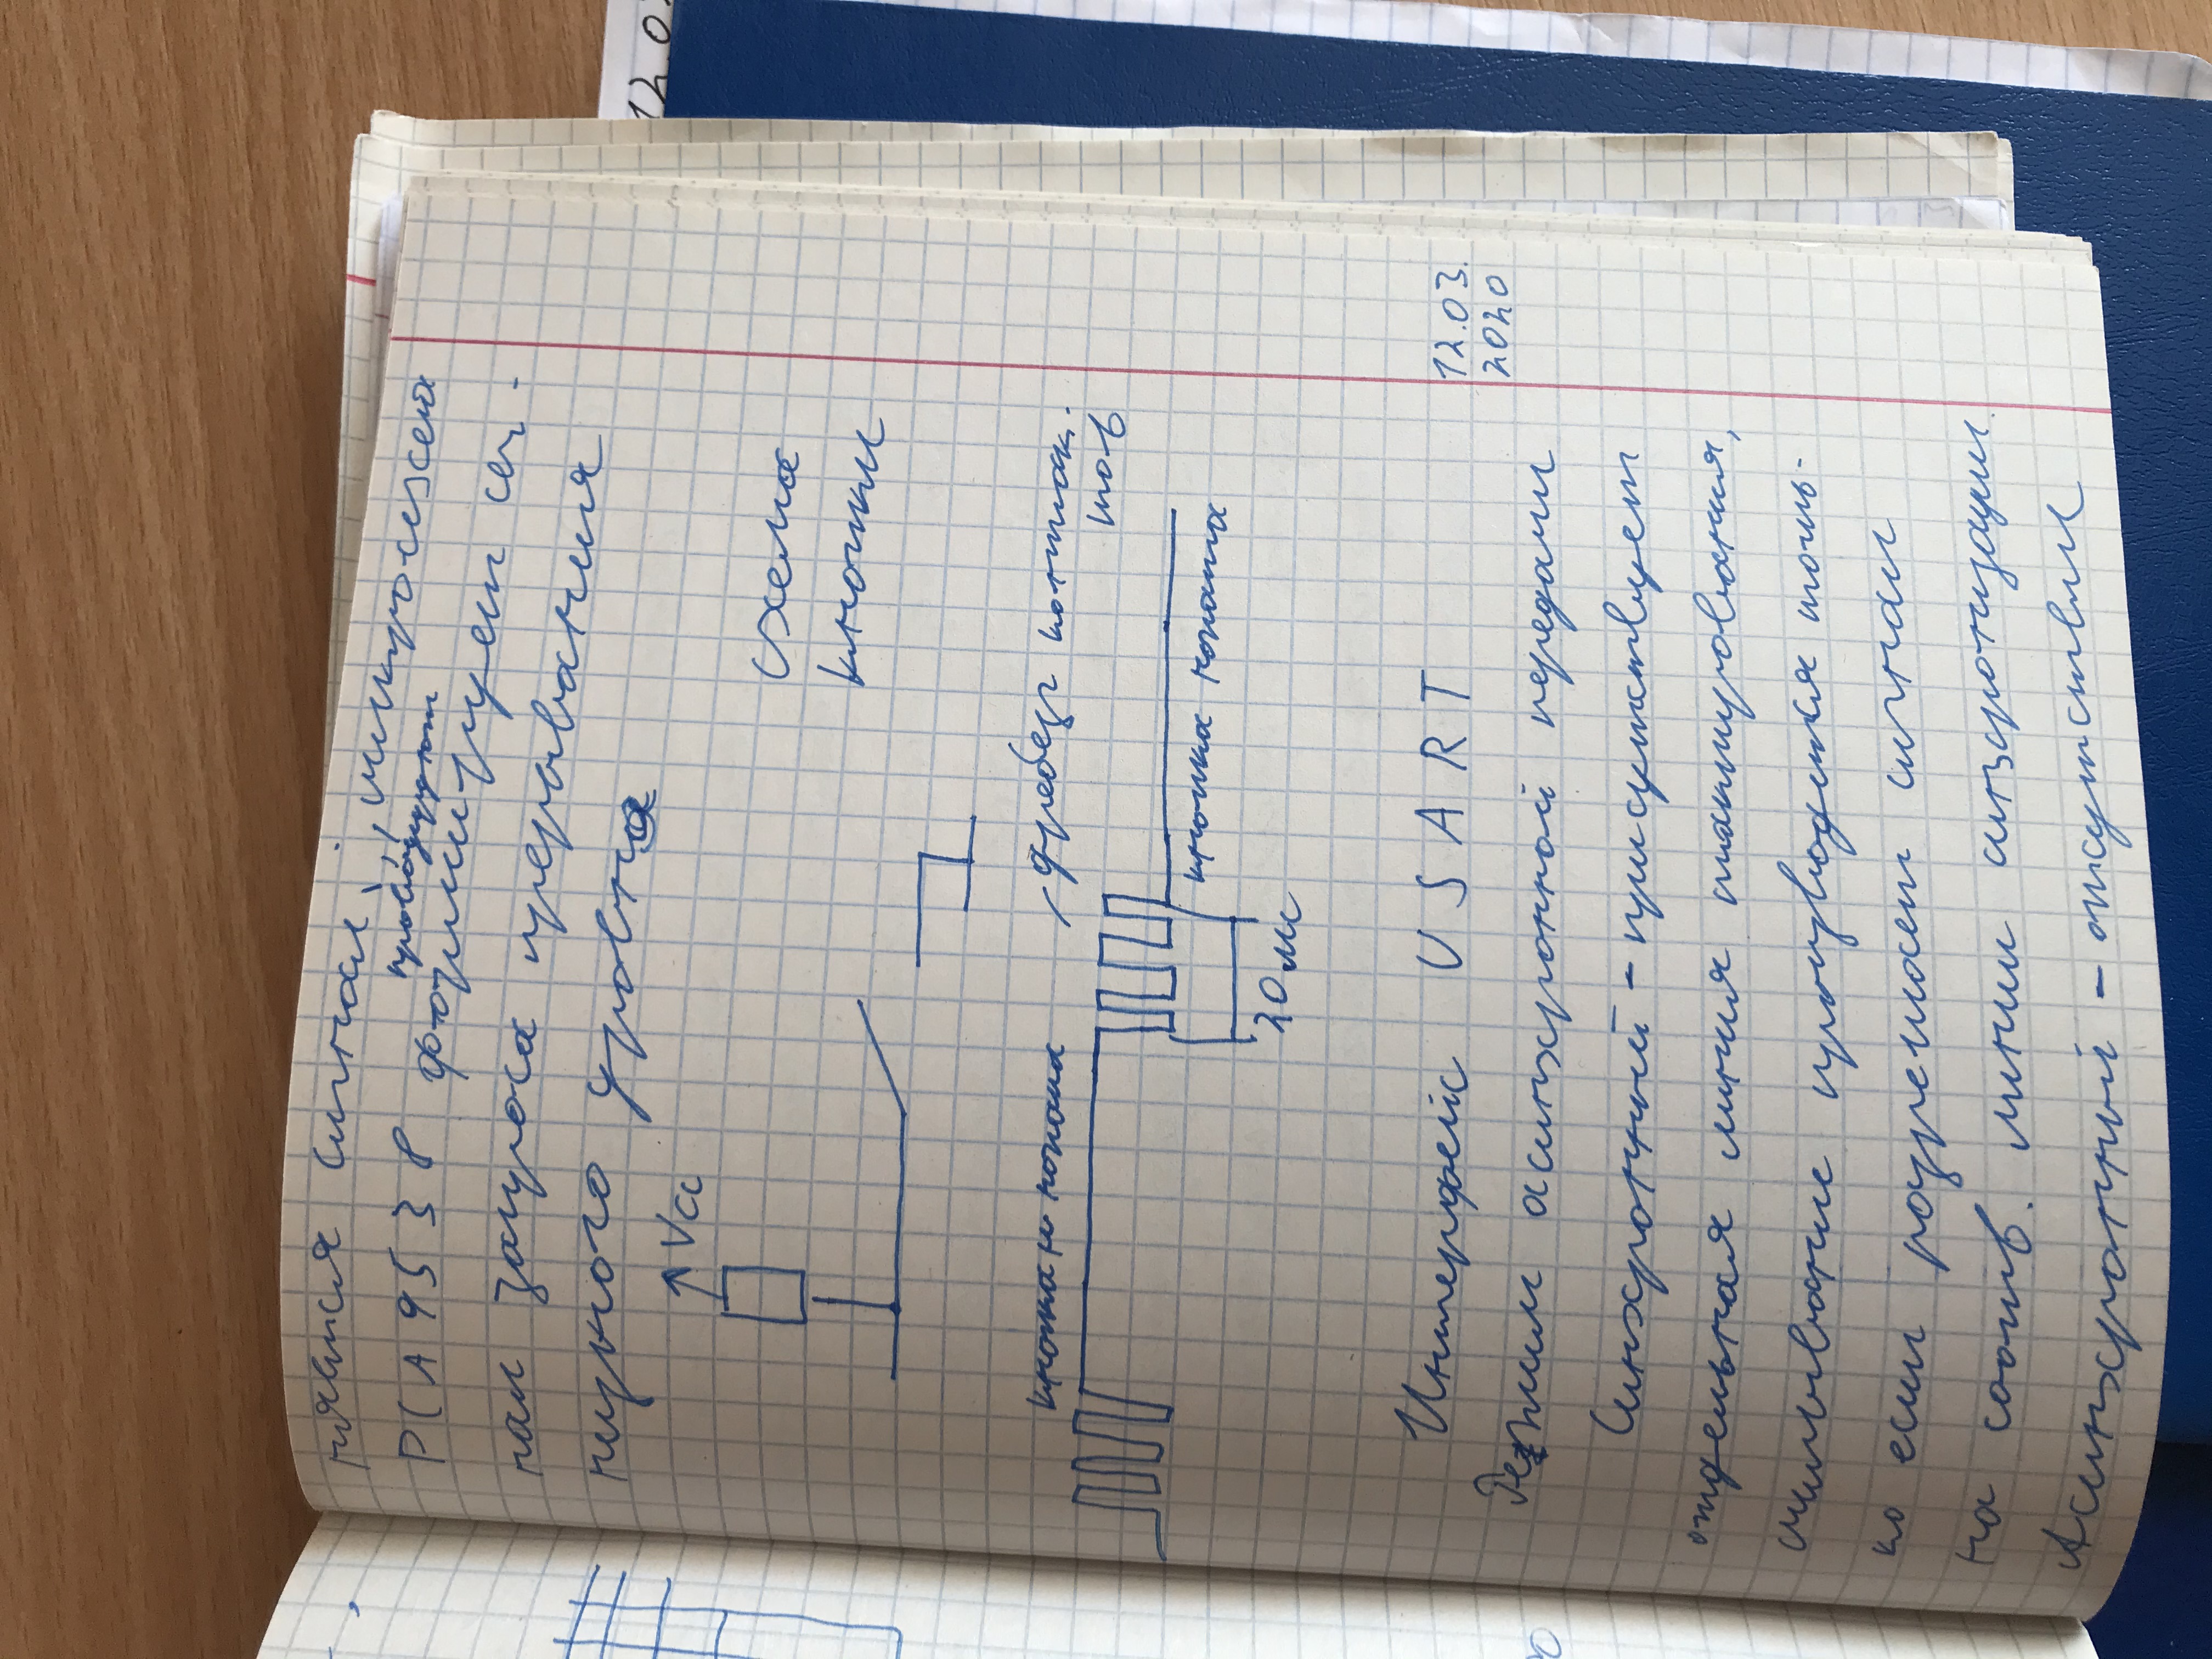 няется сигнал, микросхема
PCA9538 формирует сиг-
нал запроса прерывания
низкого уровня
Vcc
схема
кнопки
кнопка н нажата
дребезг контак-
тов
кнопка нажата
20 мс
Интерфейс USART
12.03.
2020
Режим асинхронной передачи
Синхронный - присутствует
отдельная линия тактирования,
считывание производится толь-
ко если разрешает сигнал
на соотв. линии синхронизации
Асинхронный - отсутствии
12 0